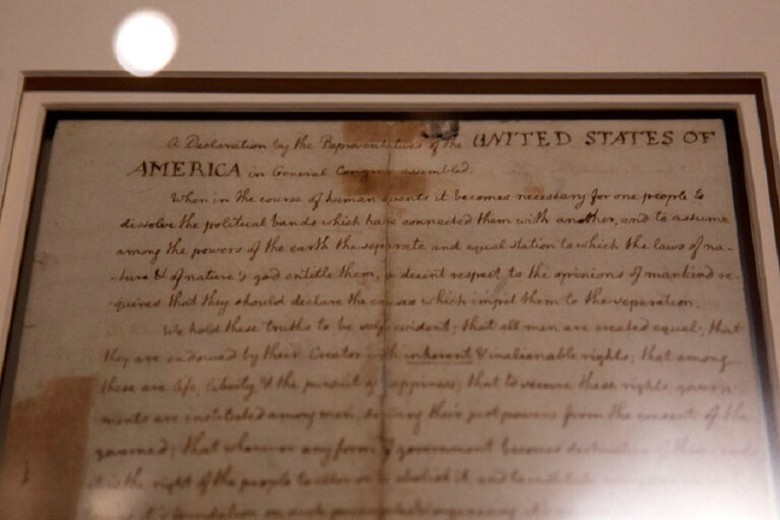 A Declaration by the Representatives of the UNITED STATES OF
AMERICA in General Congress assembled.
When in the course of human events it becomes necessary for one people to
dissolve the political bands which have connected them with another, and to assume
among the powers of the earth the separate and equal station to which the laws of na-
-ture & of nature's god entitle them, a decent respect to the opinions of mankind re-
-quires that they should declare the causes which impel them to the separation.
We hold these truths to be self evident; that all men are created equal; that
they are endowed by their Creator with inherent & inalienable rights; that among
these are life, liberty, & the pursuit of happiness; that to secure these rights, govern-
ments are instituted among men, deriving their just powers from the consent of the
governed; that whenever any form of government becomes destructive of these ends
it is the right of the people to alter or to abolish it, and to institute
it's foundation on such principles